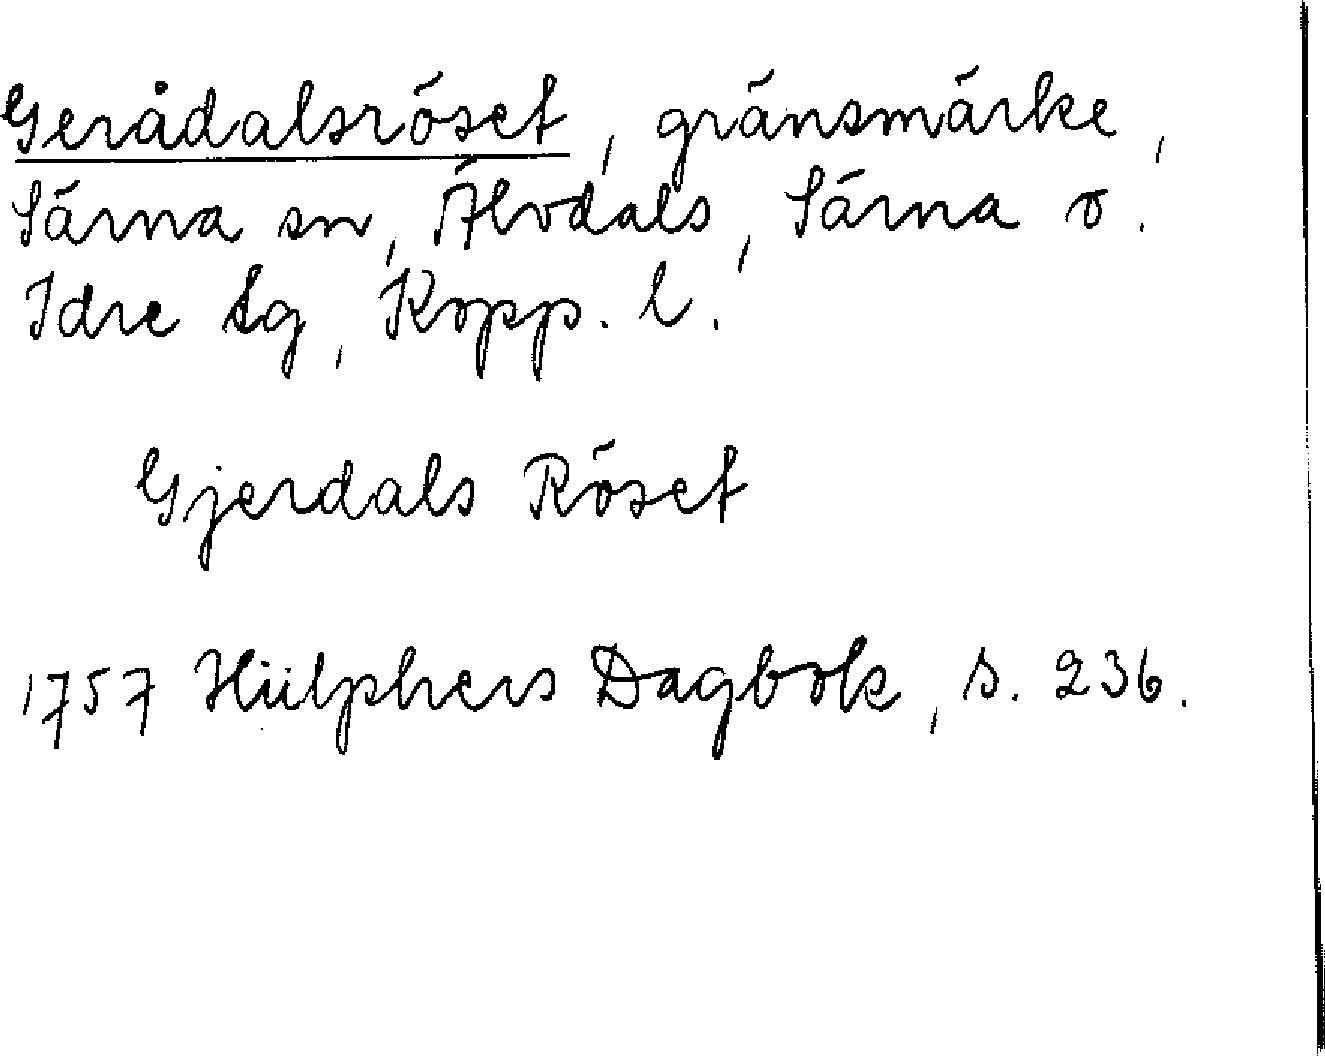 Gerådalsröset, gränsmärke,
Särna sn, Älvdals, Särna o.
Idre tg, Kopp. l.
Gjerdals Röset
1757 Hülphers Dagbok, s. 236.